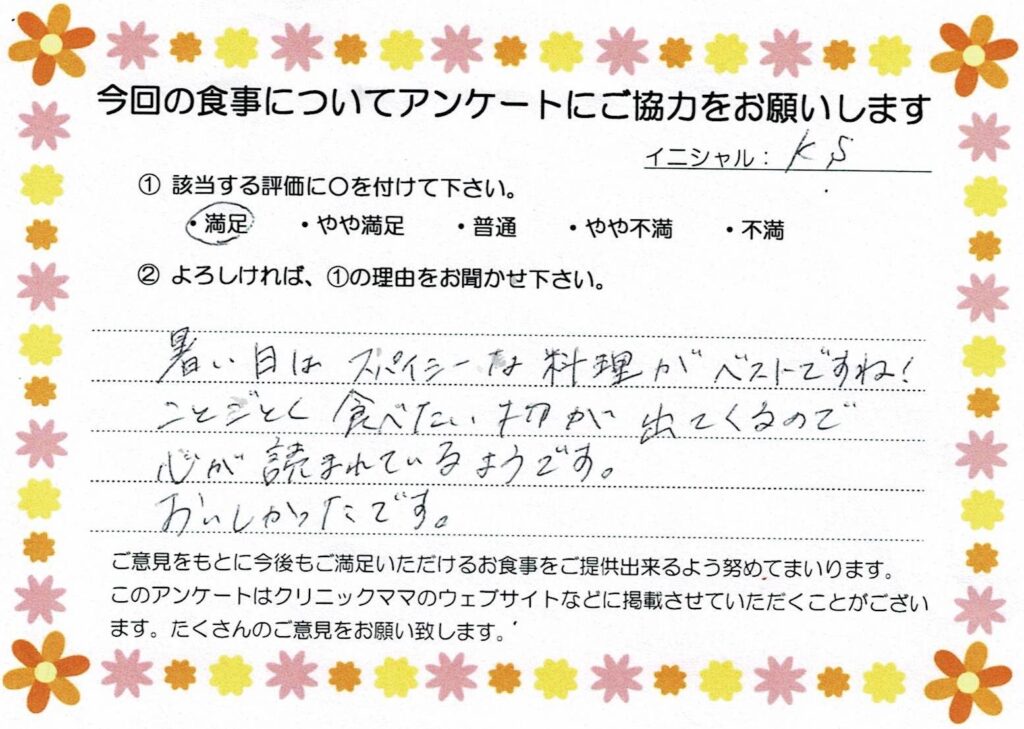 今回の食事についてアンケートにご協力をお願いします
イニシャル: K S
① 該当する評価に○を付けて下さい。
・満足 ・やや満足 ・普通 ・やや不満 ・不満
② よろしければ、①の理由をお聞かせ下さい。
暑い日は スパイシーな 料理が ベストですね!
ことごとく 食べたい 物が 出てくるので
心が 読まれているようです。
おいしかったです。
ご意見をもとに今後もご満足いただけるお食事をご提供出来るよう努めてまいります。
このアンケートはクリニックママのウェブサイトなどに掲載させていただくことがござい
ます。たくさんのご意見をお願い致します。